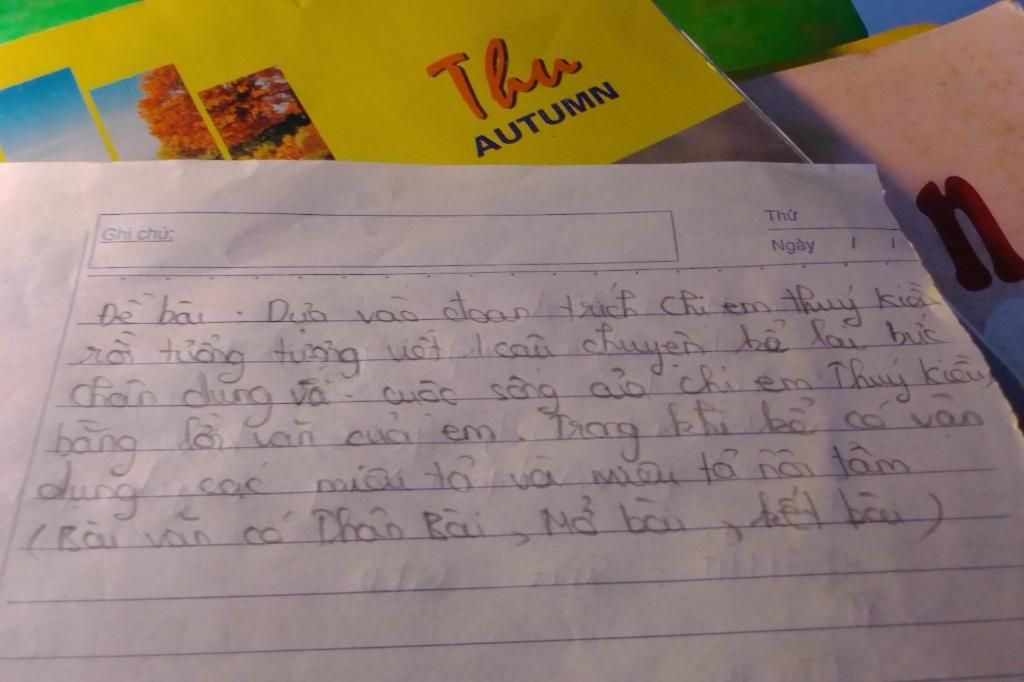 Thu
AUTUMN
n
Ghi chú:
Thứ
Ngày / /
Đề bài : Dựa vào đoạn trích chị em thuý kiều
rồi tưởng tượng viết 1 câu chuyện kể lại bức
chân dung và cuộc sống của chị em Thuý Kiều
bằng lời văn của em. Trong khi kể có vận
dụng các miêu tả và miêu tả nội tâm
(Bài văn có Thân Bài, Mở bài, kết bài)